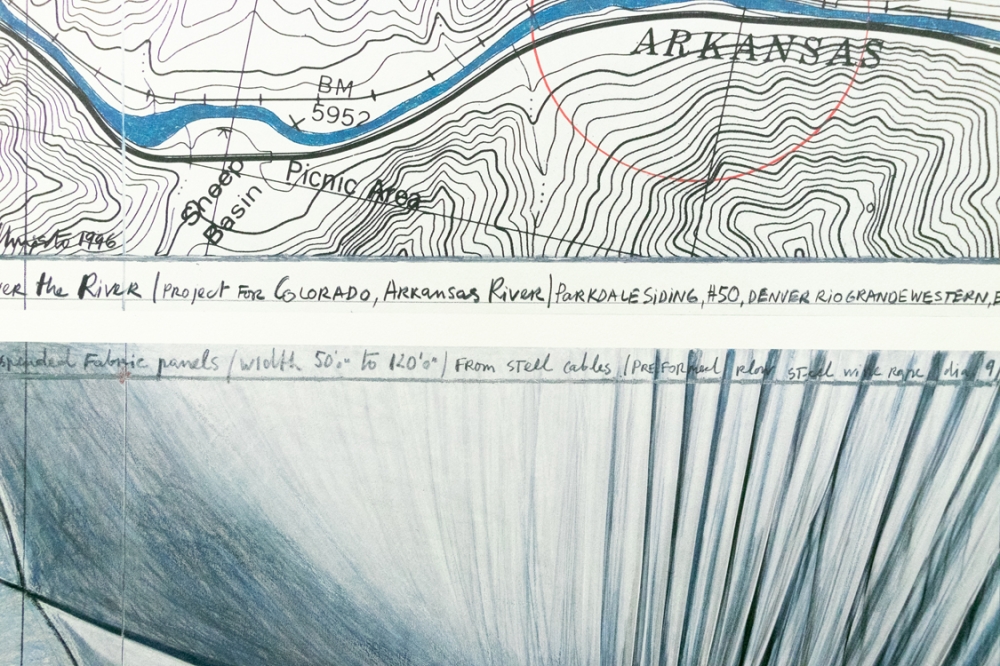 ARKANSAS
BM
5952
Sheep
Basin
Picnic Area
Christo 1996
ver the River / PROJECT FOR COLORADO, ARKANSAS RIVER / PARKDALE SIDING, #50, DENVER RIO GRANDE WESTERN,
spended Fabric panels / width 50'0" to 120'0" / FROM STELL cables / PREFORMED STEEL wire rope / dia 9/